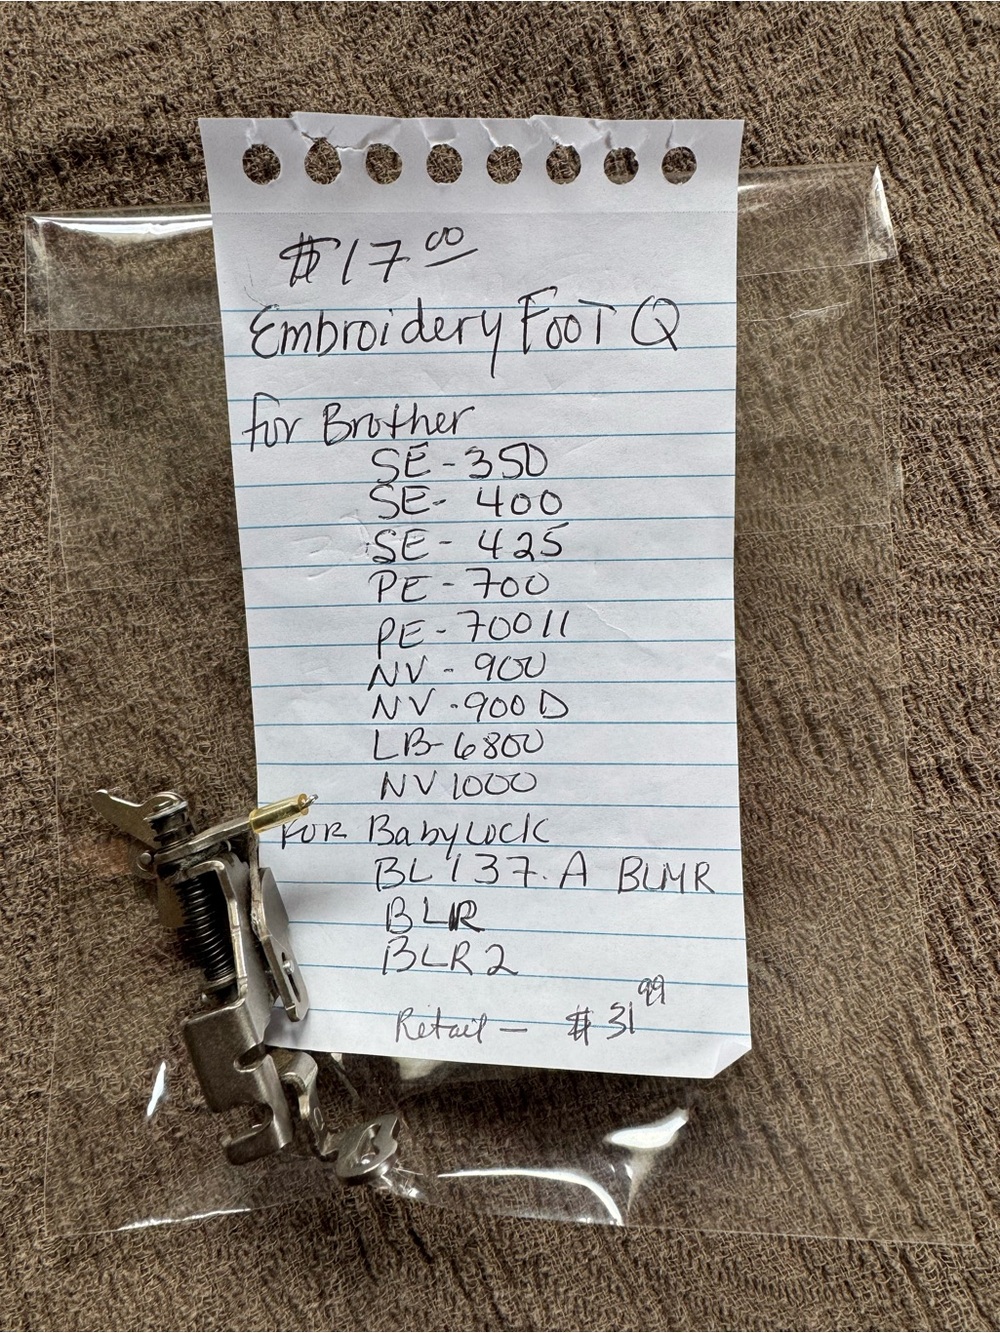 $17 00
Embroidery Foot Q
for Brother
SE-350
SE-400
SE-425
PE-700
PE-700II
NV-900
NV-900D
LB-6800
NV1000
FOR Babylock
BL137.A BLMR
BLR
BLR2
Retail — $31 99